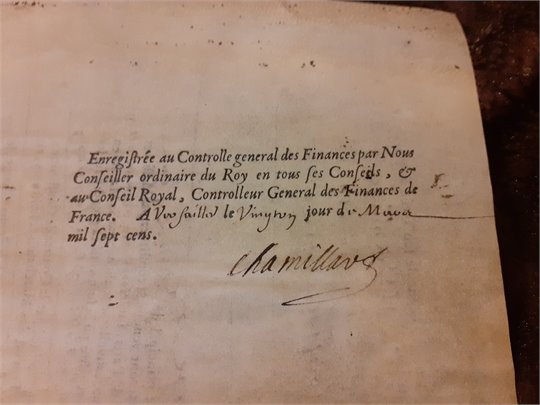 Enregiſtrée au Controlle general des Finances par Nous
Conſeiller ordinaire du Roy en tous ſes Conſeils, &
au Conſeil Royal, Controlleur General des Finances de
France. A Versailles le jour de Mars
mil ſept cens.
Chamillart